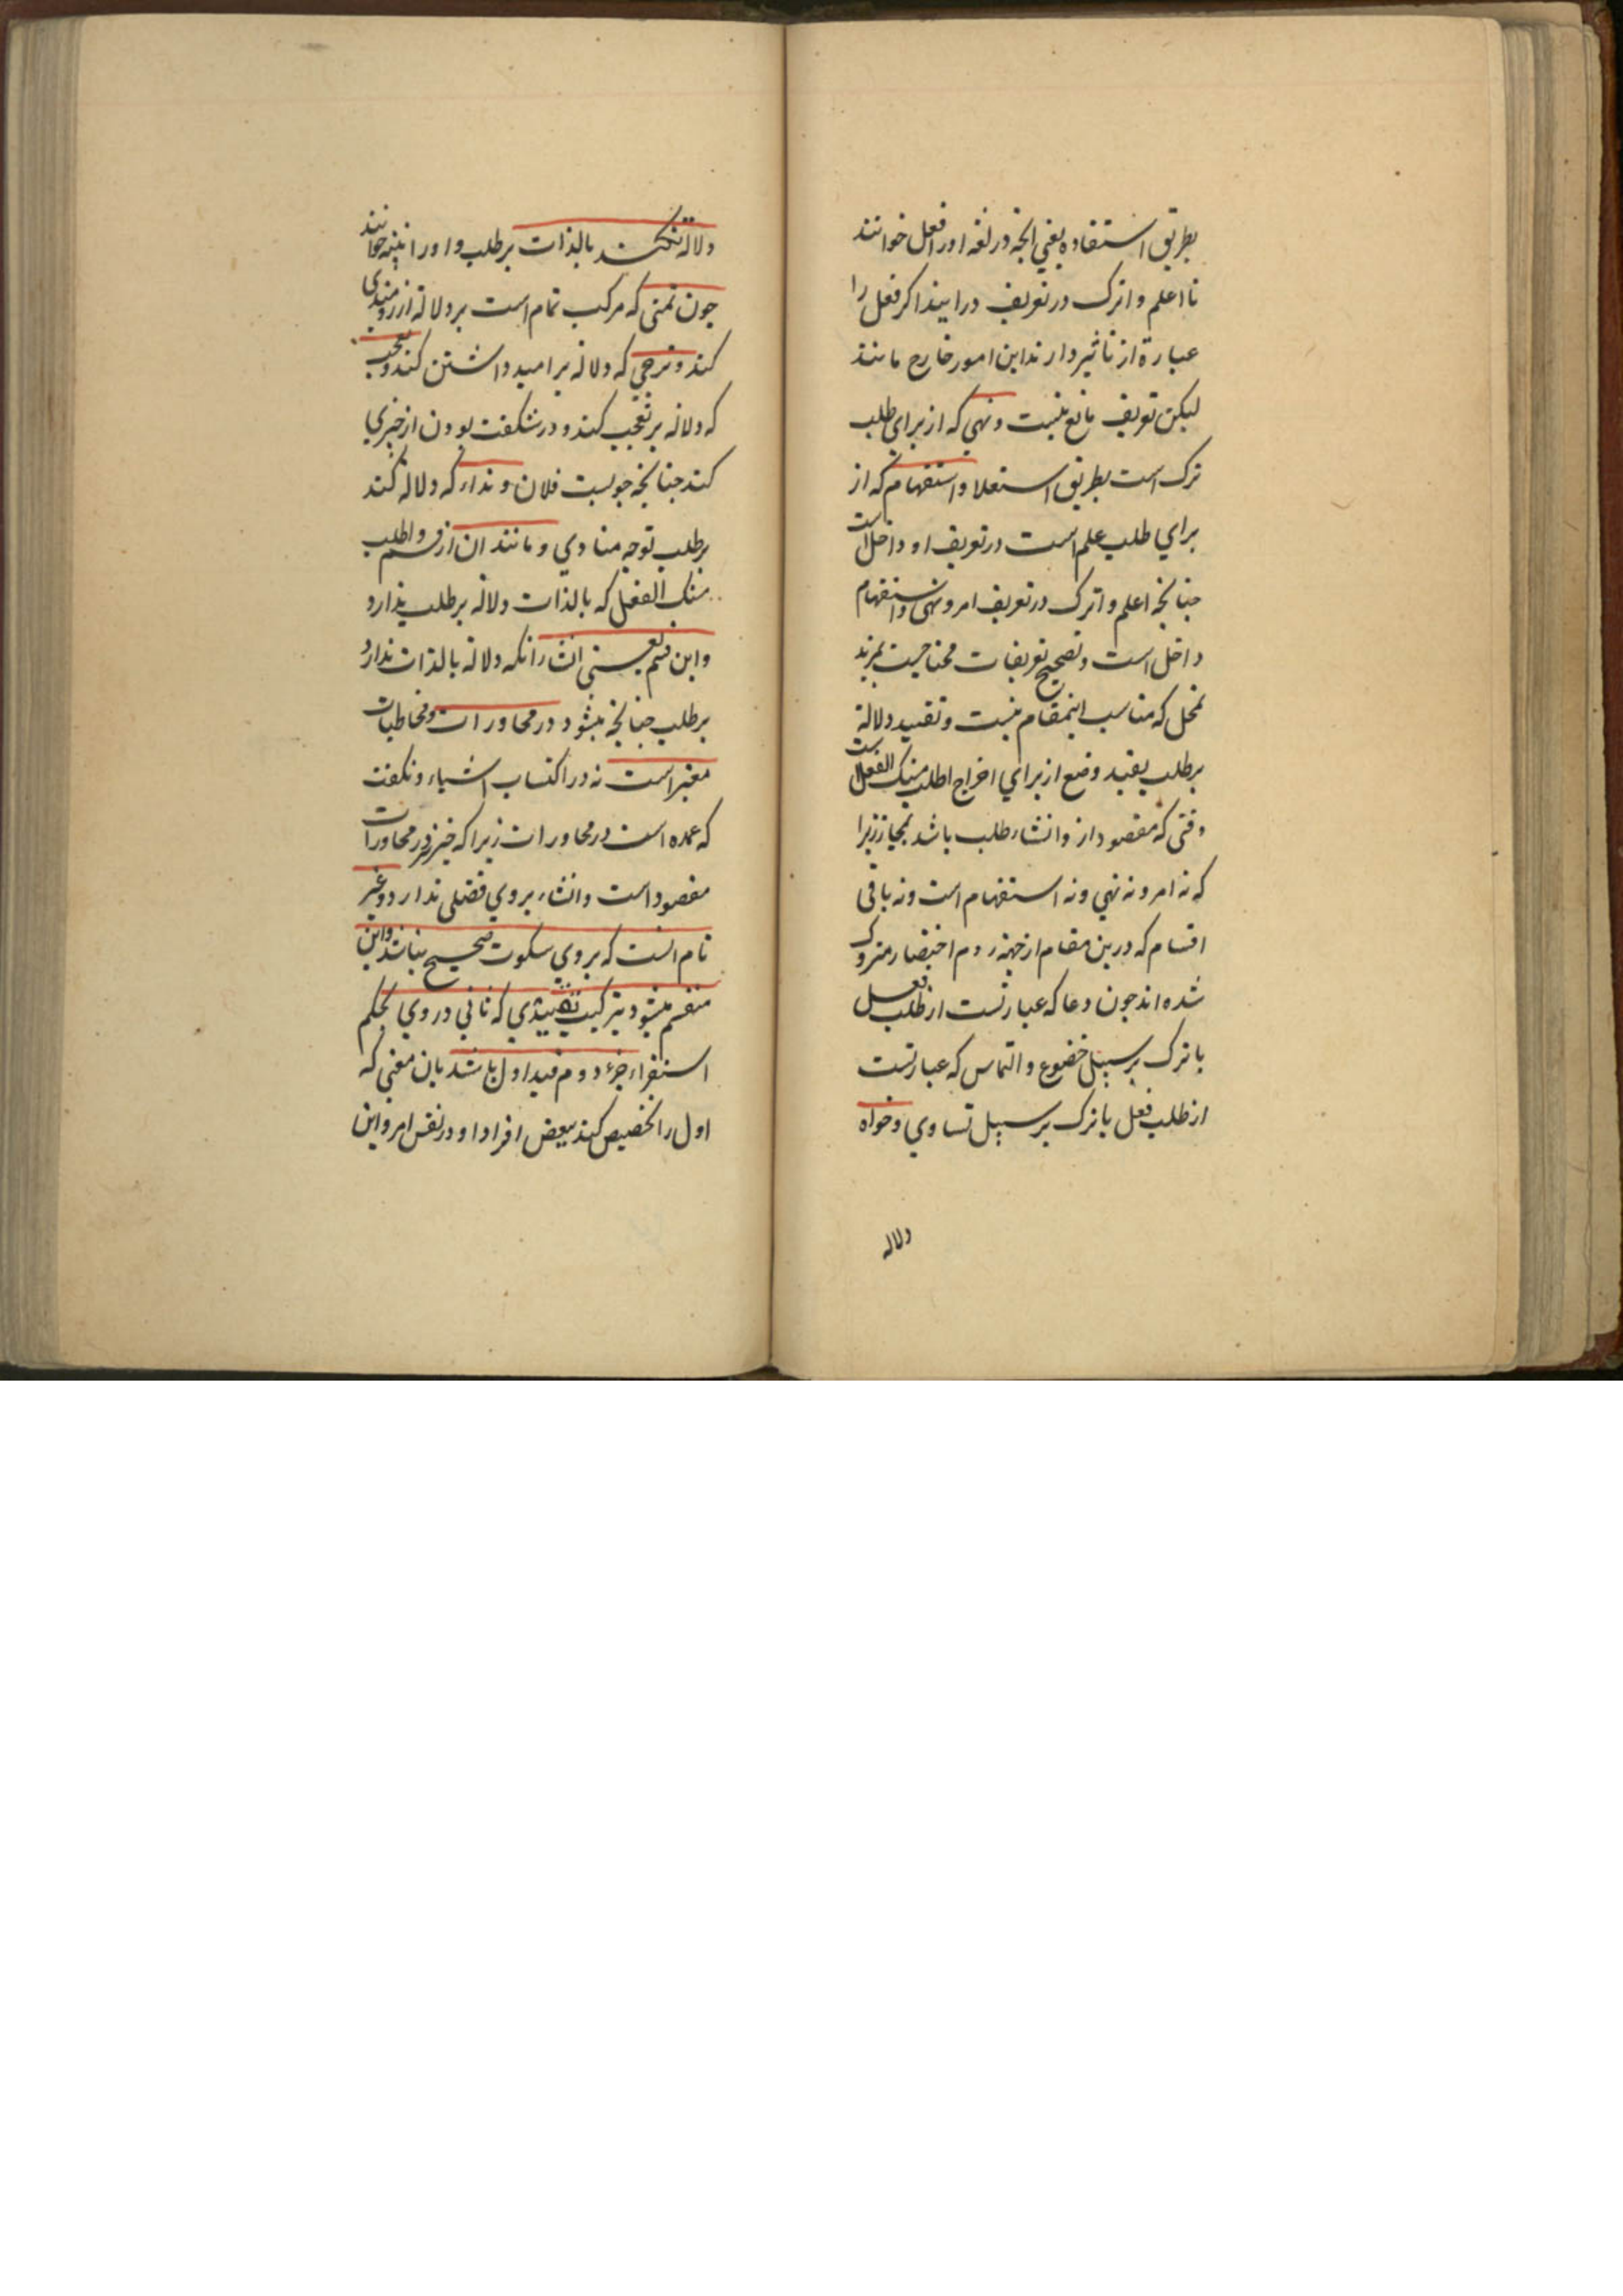 بطریق استفاده یعنی انچه در لغه او را فعل خوانند
تا اعلم و اترک در تعریف درایند اکر فعل را
عبارة از تاثیر دارند این امور خارج مانند
لیکن تعریف مانع نیست و نهی که از برای طلب
ترک است بطریق استعلا و استفهام که از
برای طلب علم است در تعریف او داخل است
جنانچه اعلم و اترک در تعریف امر و نهی و استفهام
داخل است و تصحیح تعریفات محتاجست بمزید
تمحل که مناسب اینمقام نیست و تقیید دلالة
برطلب بقید وضع از برای اخراج اطلب منک الفعل است
وقتی که مقصود از و انشاء طلب باشد بمجاز زیرا
که نه امر و نه نهی و نه استفهام است و نه باقی
اقسام که درین مقام از جهة روم اختصار متروک
شده اند جون دعا که عبارتست از طلب فعل
یا ترک بر سبیل خضوع و التماس که عبارتست
از طلب فعل یا ترک بر سبیل تساوی و خواه
دلاله
دلالة نکند بالذات برطلب و او را تنبیه خوانند
جون تمنی که مرکب تمام است بر دلالة ارزومندی
کند و ترجی که دلاله بر امید داشتن کند و تعجب
که دلاله بر تعجب کند و در شکفت بودن از خبری
کند جنانچه جوبست فلان و نداء که دلاله کند
برطلب توجه منادی و مانند ان از قسم و اطلب
منک الفعل که بالذات دلالة بر طلب ندارد
و این قسم یعنی انشا رانکه دلالة بالذات ندارد
برطلب جنانچه میشود در محاورات و مخاطبات
معتبر است نه در اکتساب اشیاء و نکفت
که عمده است در محاورات زیرا که خبر در محاورات
مقصود است و انشاء بروی فضلی ندارد و غیر
تام انست که بروی سکوت صحیح نباشد و این
منقسم میشود بترکیب تقییدی که ثانی در وی بحکم
استقراء جزء دوم قید اول باشد بان معنی که
اول را تخصیص کند ببعض افراد او در نفس امر و این